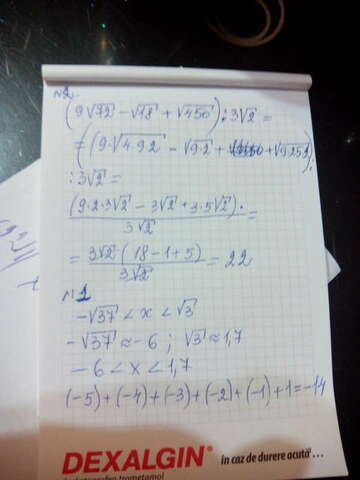 №2
(9√72 − √18 + √450) : 3√2 =
= (9·√4·9·2 − √9·2 + √9·25·2) :
: 3√2 =
(9·2·3√2 − 3√2 + 3·5√2) · / 3√2 =
= 3√2 (18 − 1 + 5) / 3√2 = 22
№1
−√37 < x < √3
−√37 ≈ −6 ; √3 ≈ 1,7
−6 < x < 1,7
(−5) + (−4) + (−3) + (−2) + (−1) + 1 = −14
DEXALGIN®
în caz de durere acută...
trometamol